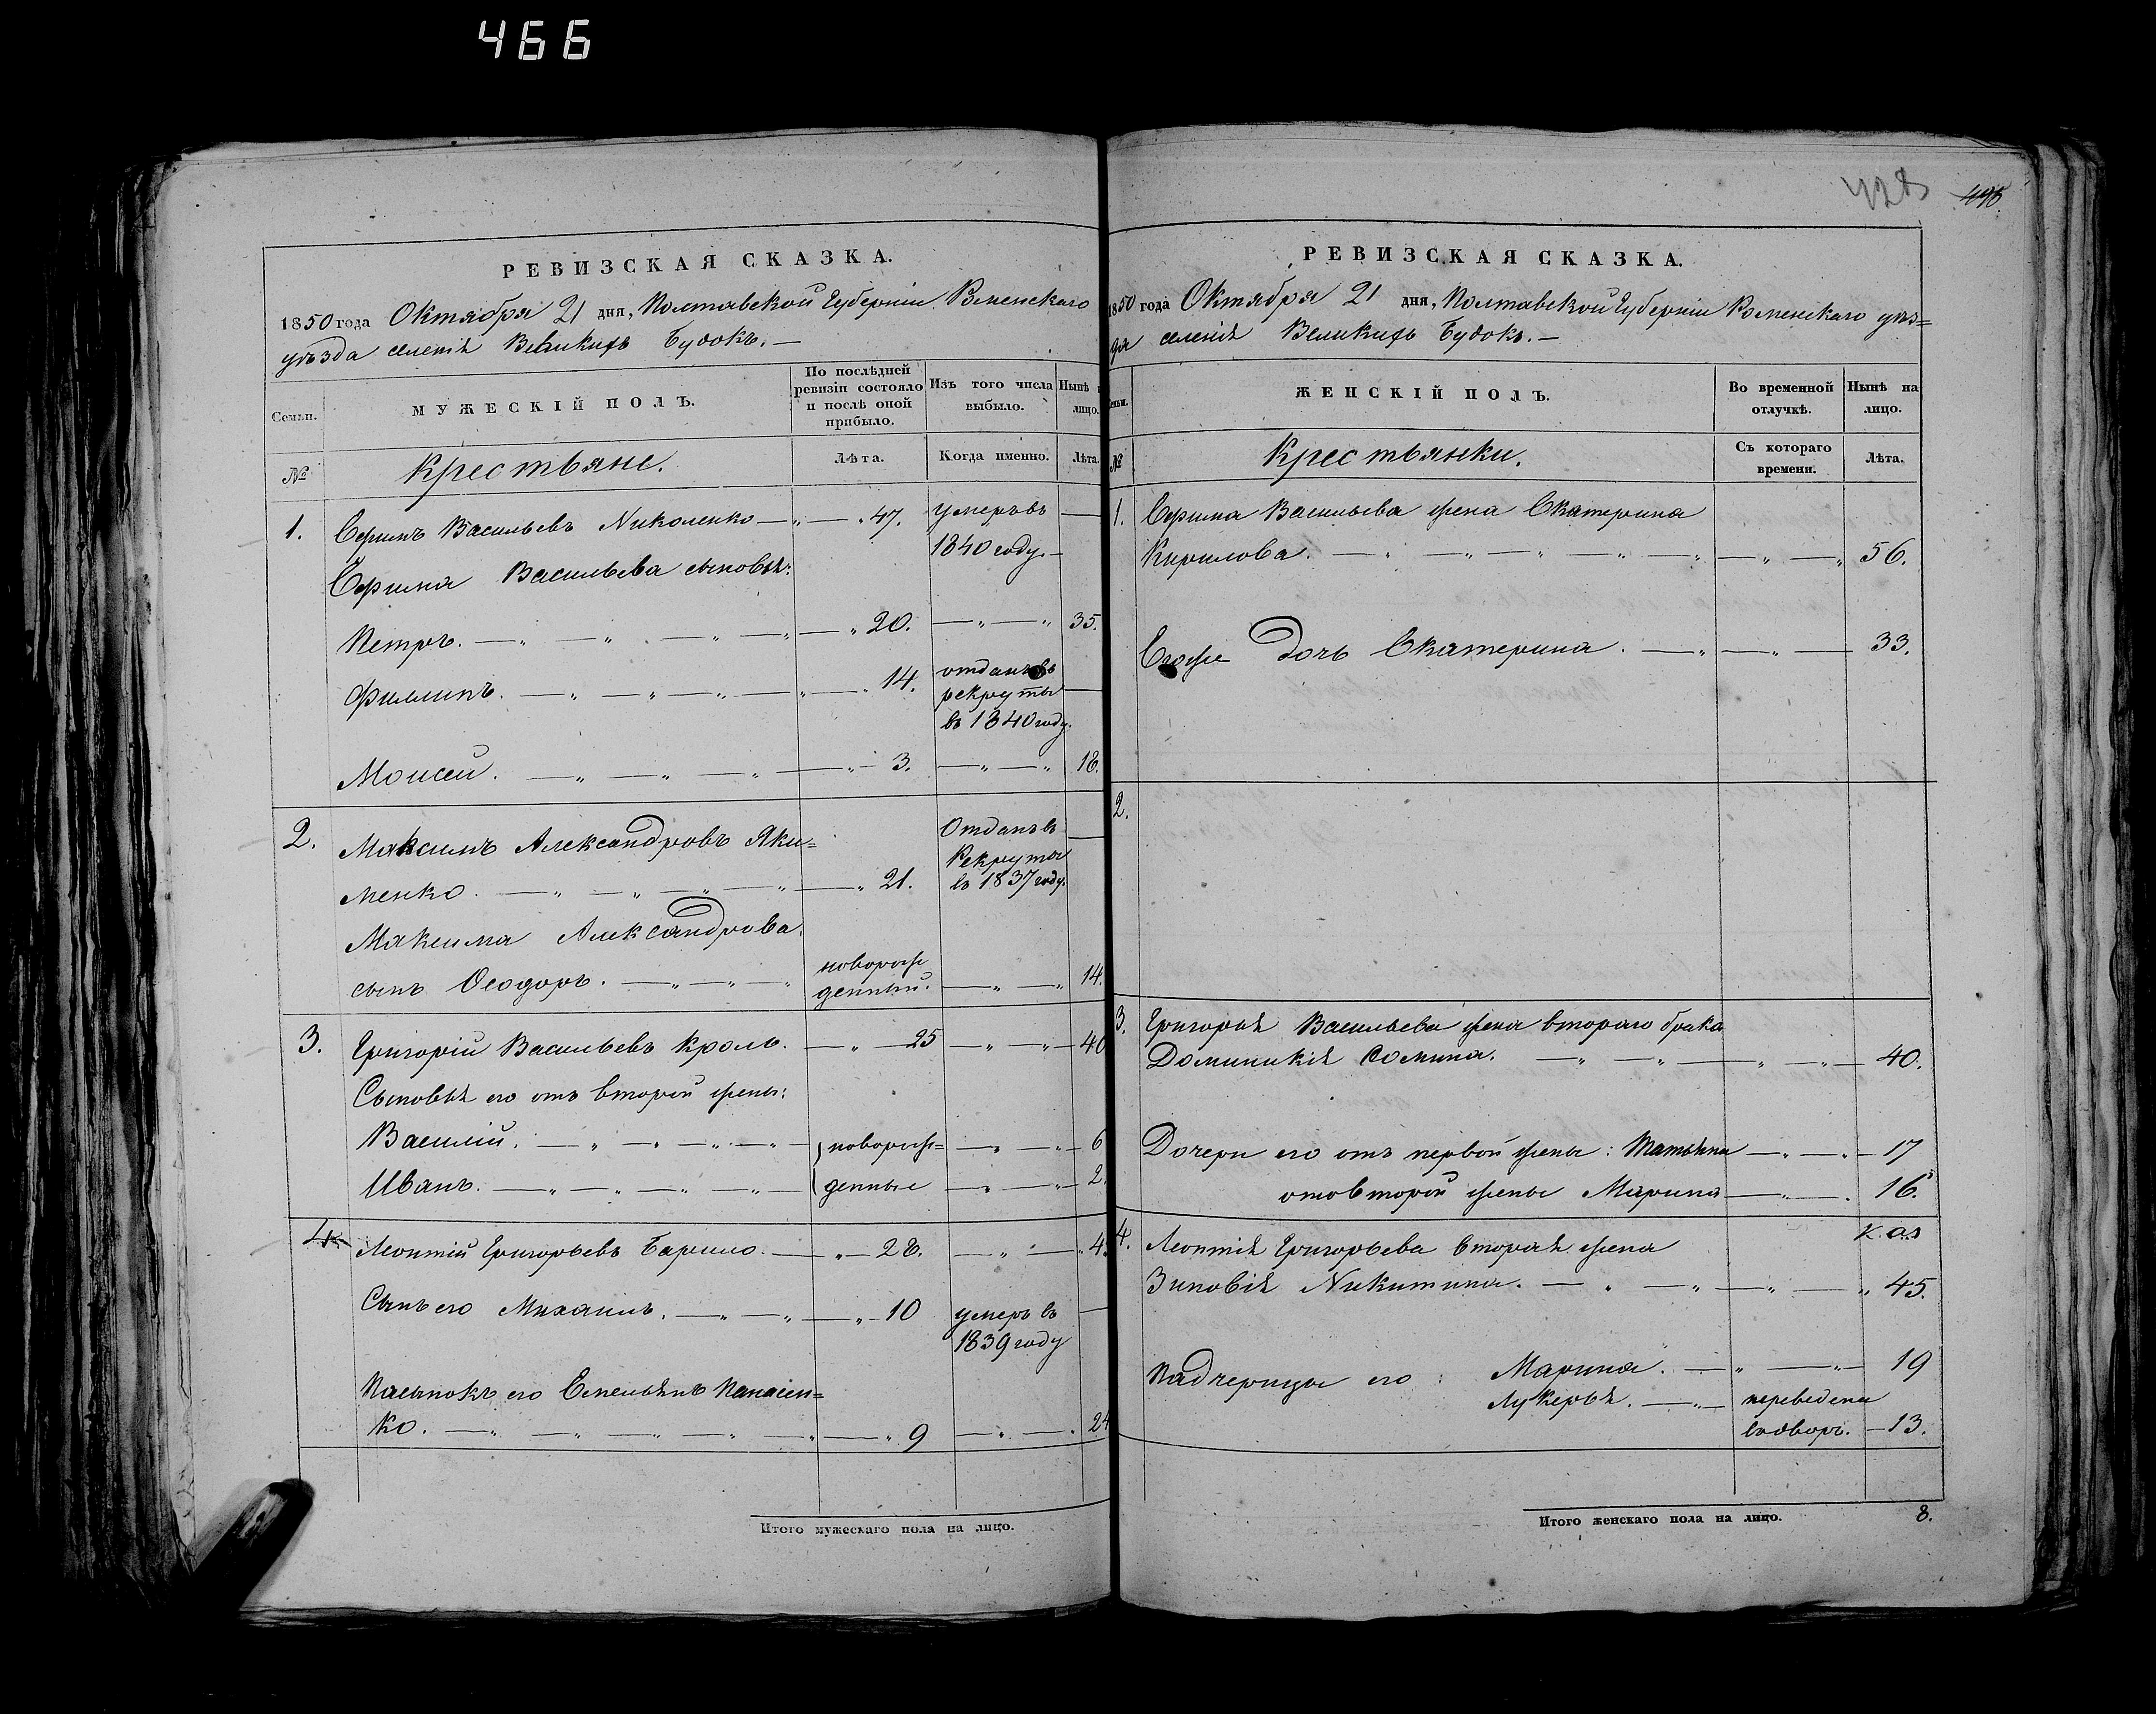 466
РЕВИЗСКАЯ СКАЗКА.
1850 года Октября 21 дня, Полтавской Губерніи Роменскаго
уѣзда селенія Великихъ Будокъ.—
Семьи.
МУЖЕСКІЙ ПОЛЪ.
По послѣдней ревизіи состояло и послѣ оной прибыло.
Изъ того числа выбыло.
Нынѣ
лицо.
№
Крестьяне.
Лѣта.
Когда именно.
Лѣта.
1. Ефимъ Васильевъ Николенко — 47. умеръ въ
1840 году.
Ефима Васильева сыновья:
Петръ. — 20. — 35.
Филипъ. — 14. отданъ въ
рекруты
въ 1840 году.
Моисей. — 3. — 18.
2. Максимъ Александровъ Яки=
менко. — 21. Отданъ въ
Рекруты
въ 1837 году.
Максима Александрова
сынъ Ѳеодоръ. — новорож
денный. — 14.
3. Григорій Васильевъ Кроль. — 25 — 40
Сыновья его отъ второй жены:
Василій. — новорож= — 6
Иванъ. — денные — 2.
4. Леонтій Григорьевъ Барило. — 28. — 4
Сынъ его Михаилъ. — 10 умеръ въ
1839 году
Пасынокъ его Емельянъ Панасен=
ко. — 9 — 24
Итого мужескаго пола на лицо.
РЕВИЗСКАЯ СКАЗКА.
1850 года Октября 21 дня, Полтавской Губерніи Роменскаго уѣз=
да селенія Великихъ Будокъ.—
№
ЖЕНСКІЙ ПОЛЪ.
Во временной отлучкѣ.
Нынѣ на лицо.
Крестьянки.
Съ котораго времени.
Лѣта.
1. Ефима Васильева жена Екатерина
Кирилова. — 56.
Егоже дочь Екатерина. — 33.
2.
3. Григорья Васильева жена втораго брака
Доминикія Сомина. — 40.
Дочери его отъ первой жены: Татьяна — 17
отъ второй жены Марина — 16.
4. Леонтія Григорьева вторая жена
Зиновія Никитина. — 45.
Падчерицы его: Марина. — 19
Лукерья. — переведена
во дворъ. — 13.
Итого женскаго пола на лицо. 8.